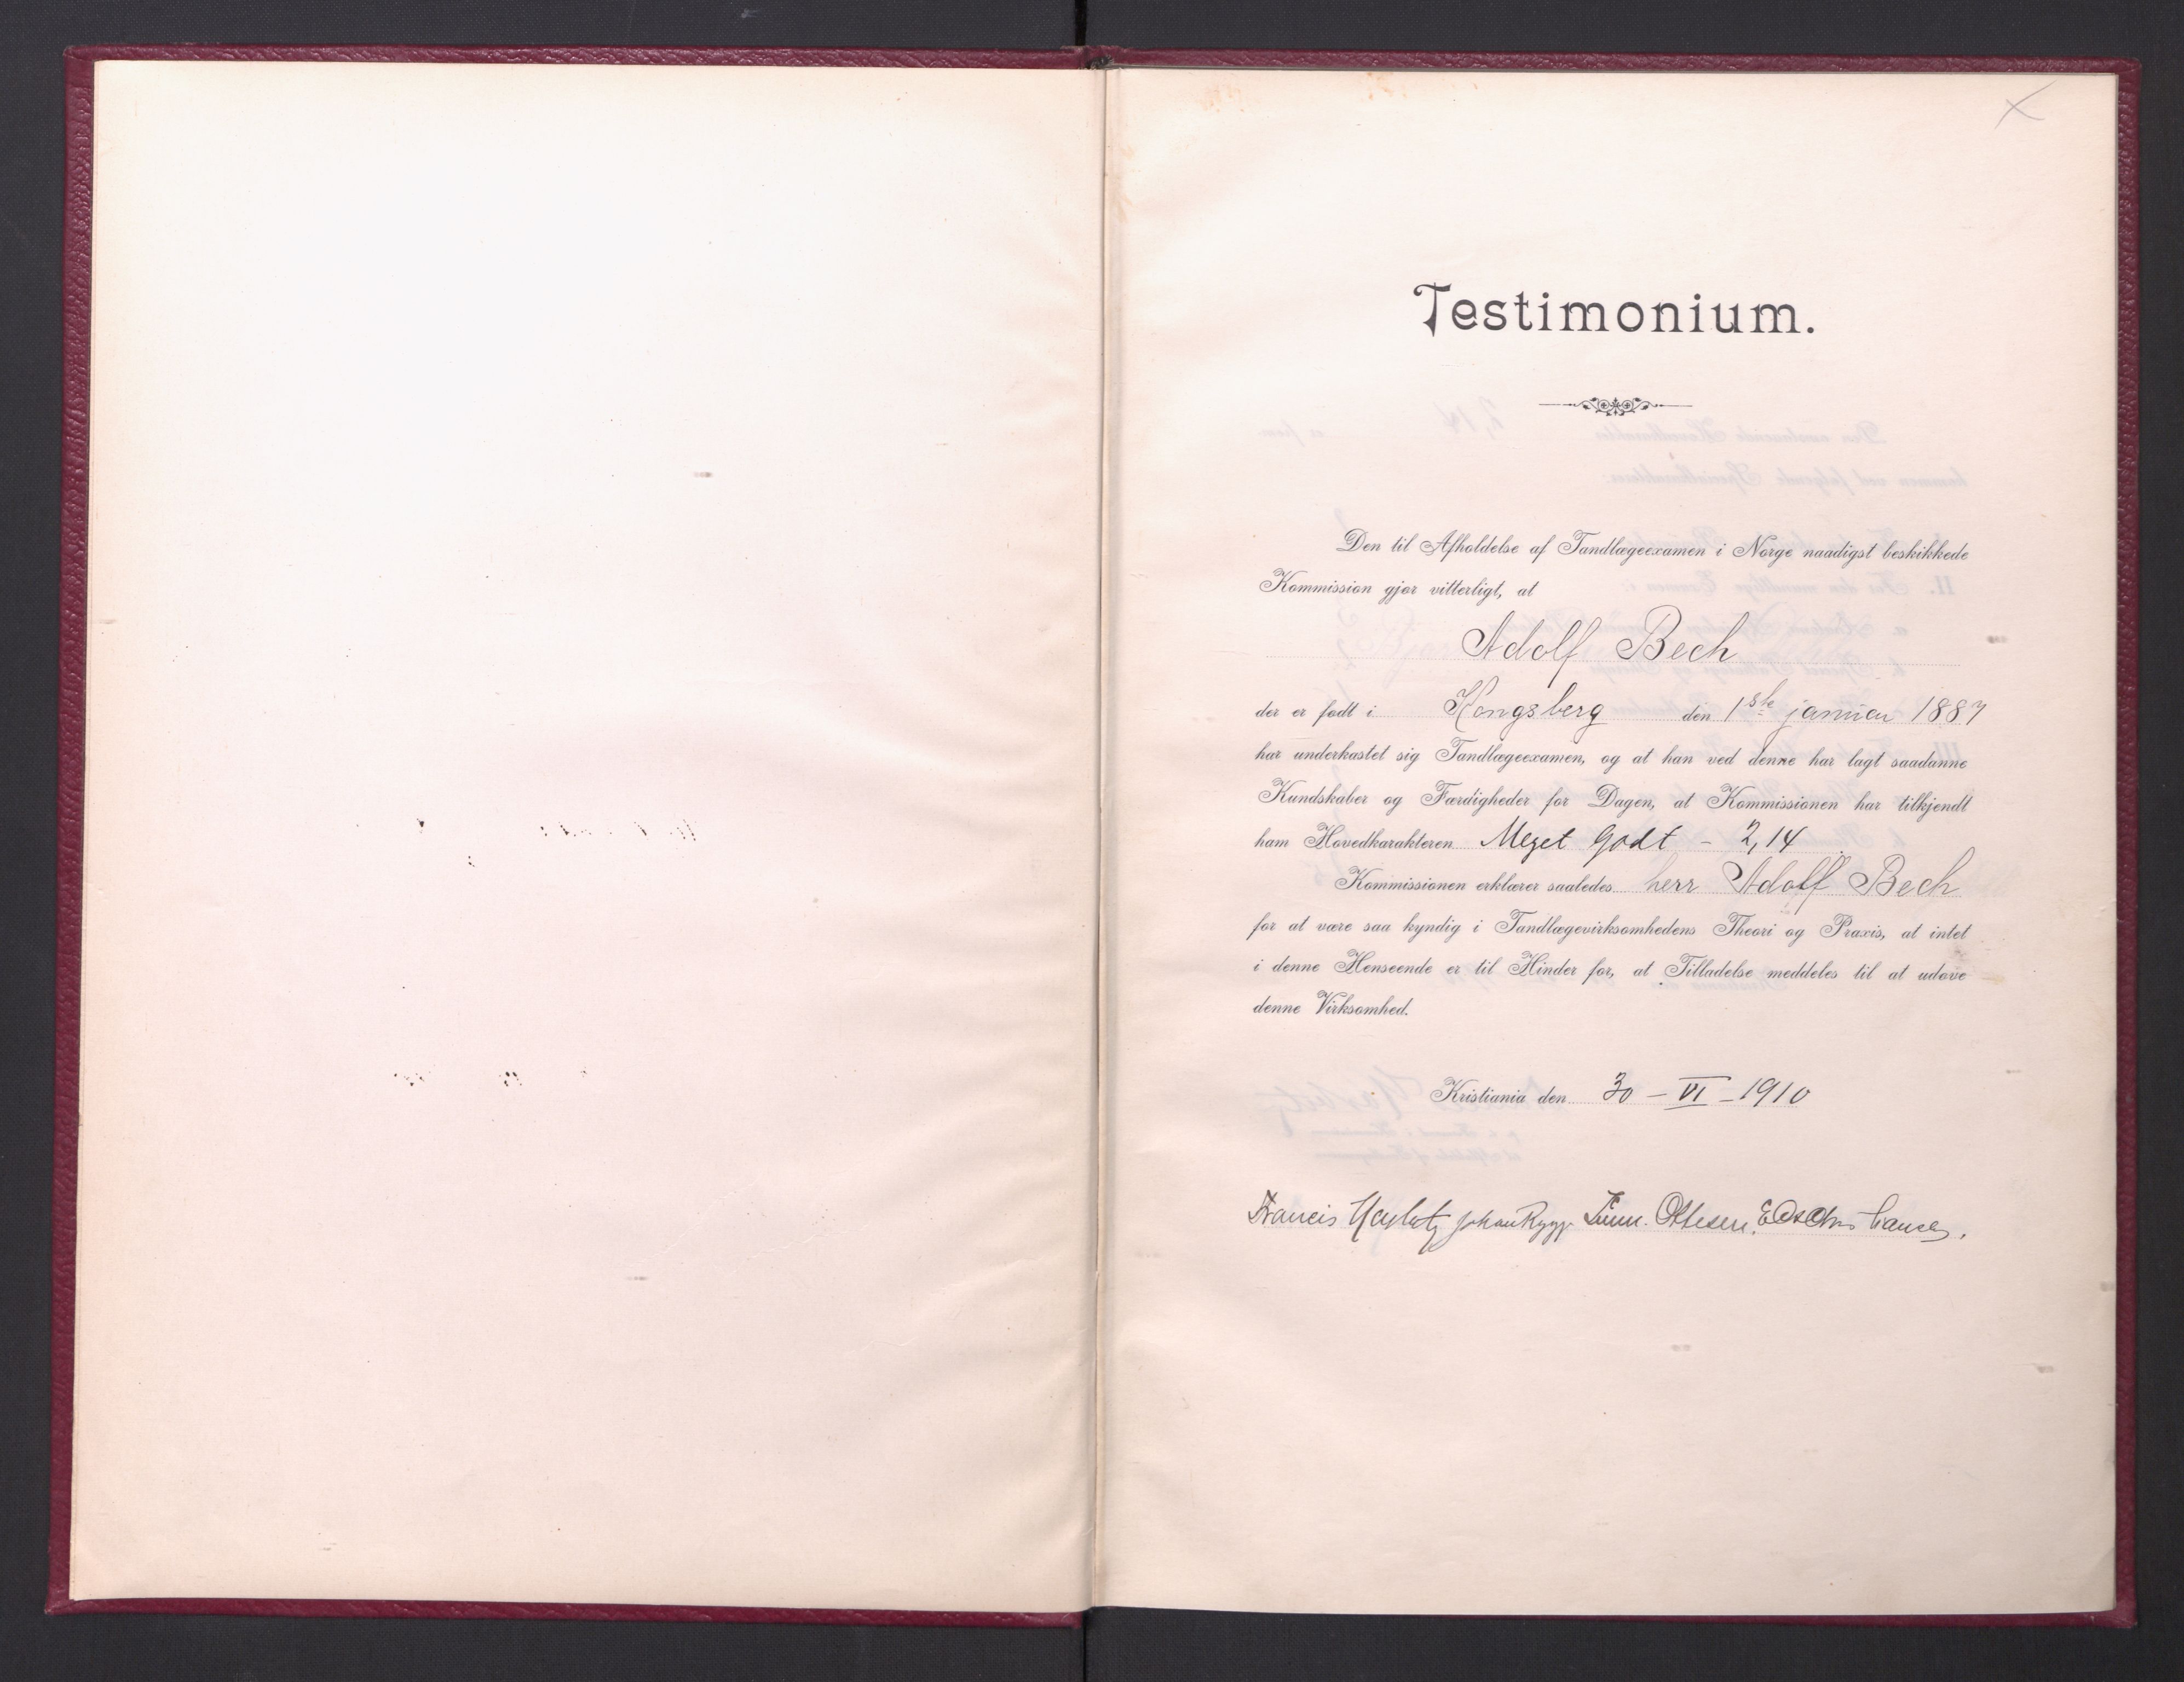 Testimonium.
Den til Afholdelse af Tandlægeexamen i Norge naadigst beskikkede
Kommission gjør vitterligt, at
Adolf Bech
der er født i Kongsberg den 1ste januar 1887
har underkastet sig Tandlægeexamen, og at han ved denne har lagt saadanne
Kundskaber og Færdigheder for Dagen, at Kommissionen har tilkjendt
ham Hovedkarakteren Meget Godt - 2,14
Kommissionen erklærer saaledes herr Adolf Bech
for at være saa kyndig i Tandlægevirksomhedens Theori og Praxis, at intet
i denne Henseende er til Hinder for, at Tilladelse meddeles til at udøve
denne Virksomhed.
Kristiania den 30 - VI - 1910
Francis Johan Rygge Ottesen.